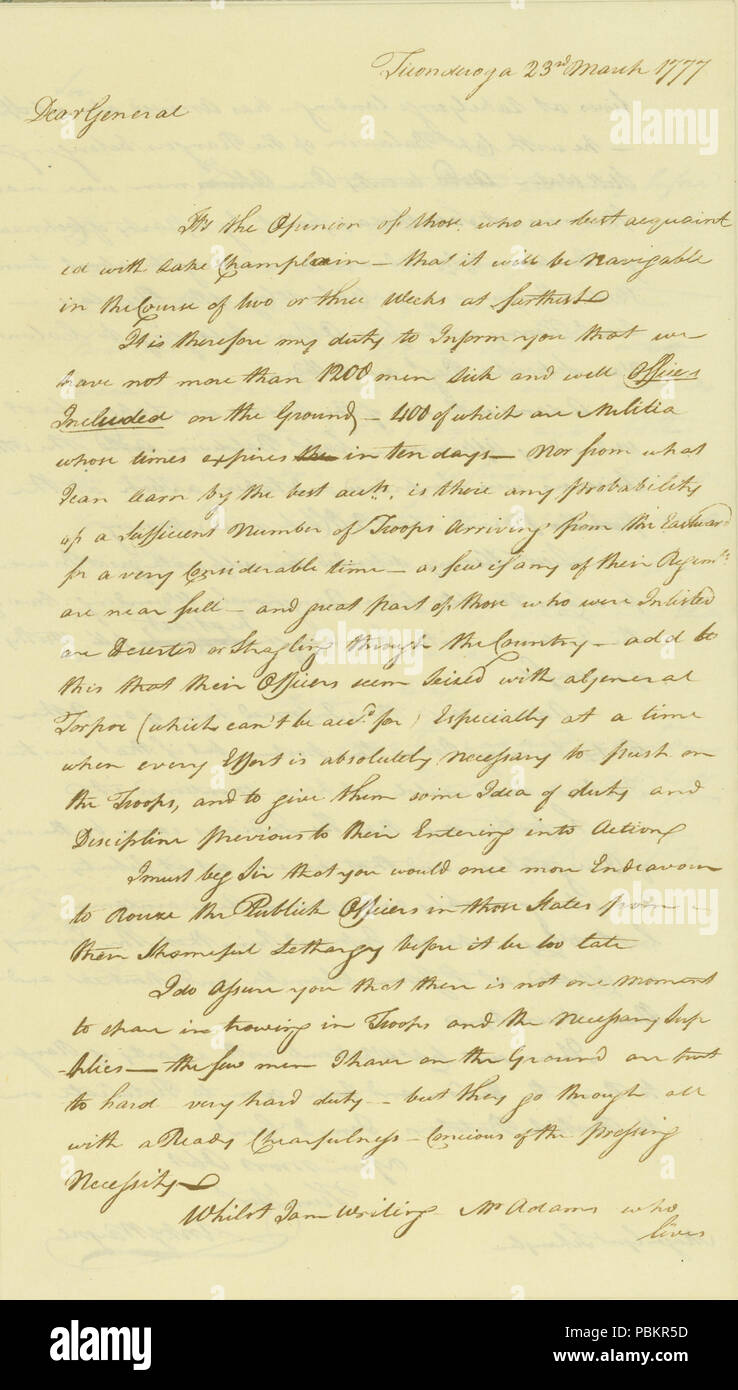 Ticonderoga 23rd March 1777
Dear General
It's the Opinion of those who are best acquaint
ed with Lake Champlain – that it will be Navigable
in the Course of two or three Weeks at farthest
It is therefore my duty to Inform you that we
have not more than 1200 men sick and well Officers
Included on the Ground, – 400 of which are Militia
whose times expires the in ten days – Nor from what
I can learn by the best accts. is there any probability
of a Sufficient Number of Troops Arriving from the Eastward
for a very Considerable time – as few if any of their Regimts
are near full – and great part of those who were Inlisted
are Deserted or Stragling through the Country – add to
this that their Officers seem Seized with a General
Torpor (which can't be accd for) Especially at a time
when every Effort is absolutely necessary to push on
the Troops, and to give them some Idea of duty and
Discipline previous to their Entering into Action
I must beg Sir that you would once more Endeavour
to Rouze the Publick Officers in those States from
their Shameful Lethargy before it be too late
I do Assure you that there is not one Moment
to spare in throwing in Troops and the Necessary Sup
-plies – the few men I have on the Ground are put
to hard very hard duty – but they go through all
with a Ready Chearfulness – Concious of the pressing
Necessity
Whilst I am Writing Mr Adams who
lives
alamy
alamy
alamy
alamy
Image ID: PBKR5D
www.alamy.com